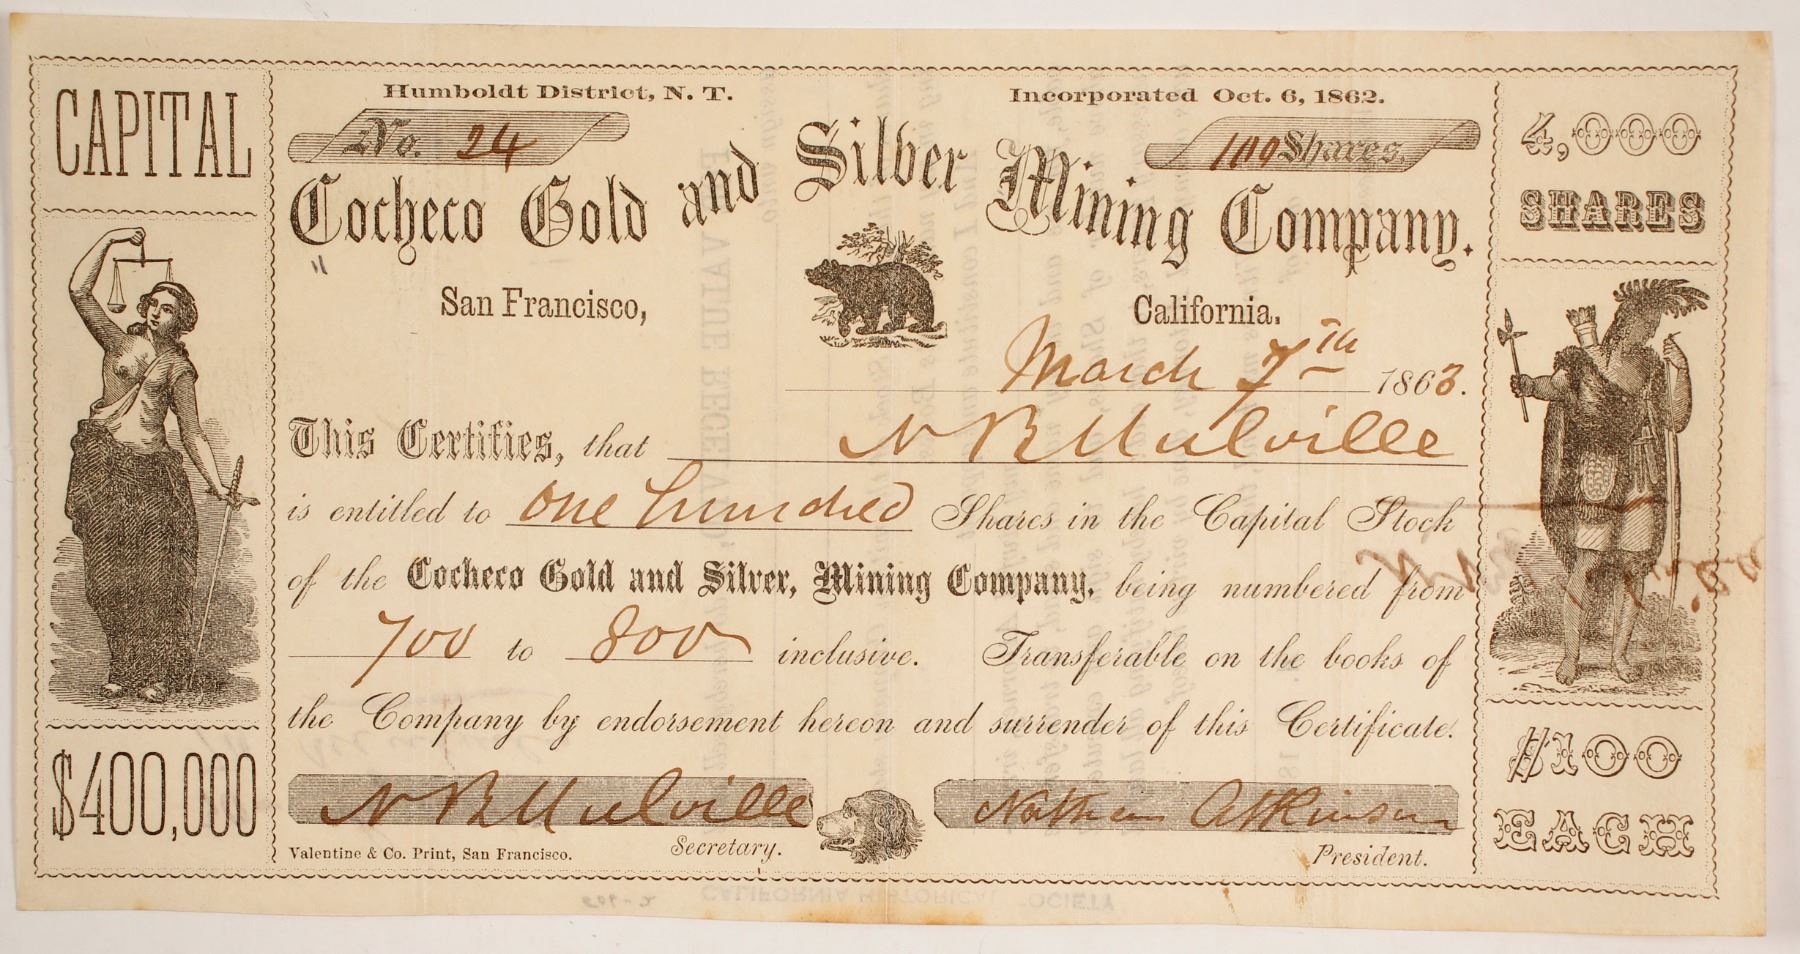 CAPITAL
$400,000
Humboldt District, N. T.
Incorporated Oct. 6, 1862.
No. 24
100 Shares.
Cocheco Gold and Silver Mining Company.
San Francisco, California.
March 7th 1863.
This Certifies, that N B Mulville
is entitled to One hundred Shares in the Capital Stock
of the Cocheco Gold and Silver, Mining Company, being numbered from
700 to 800 inclusive. Transferable on the books of
the Company by endorsement hereon and surrender of this Certificate.
N B Mulville
Nathan Atkinson
Secretary.
President.
Valentine & Co. Print, San Francisco.
4,000
SHARES
$100
EACH
CALIFORNIA HISTORICAL SOCIETY